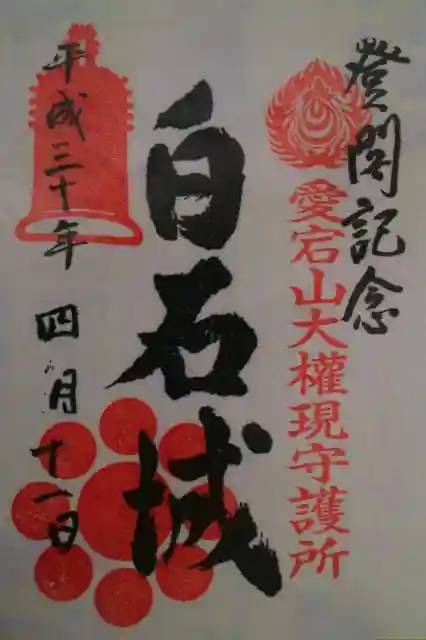 登閣記念
愛宕山大權現守護所
白石城
平成三十年 四月十一日